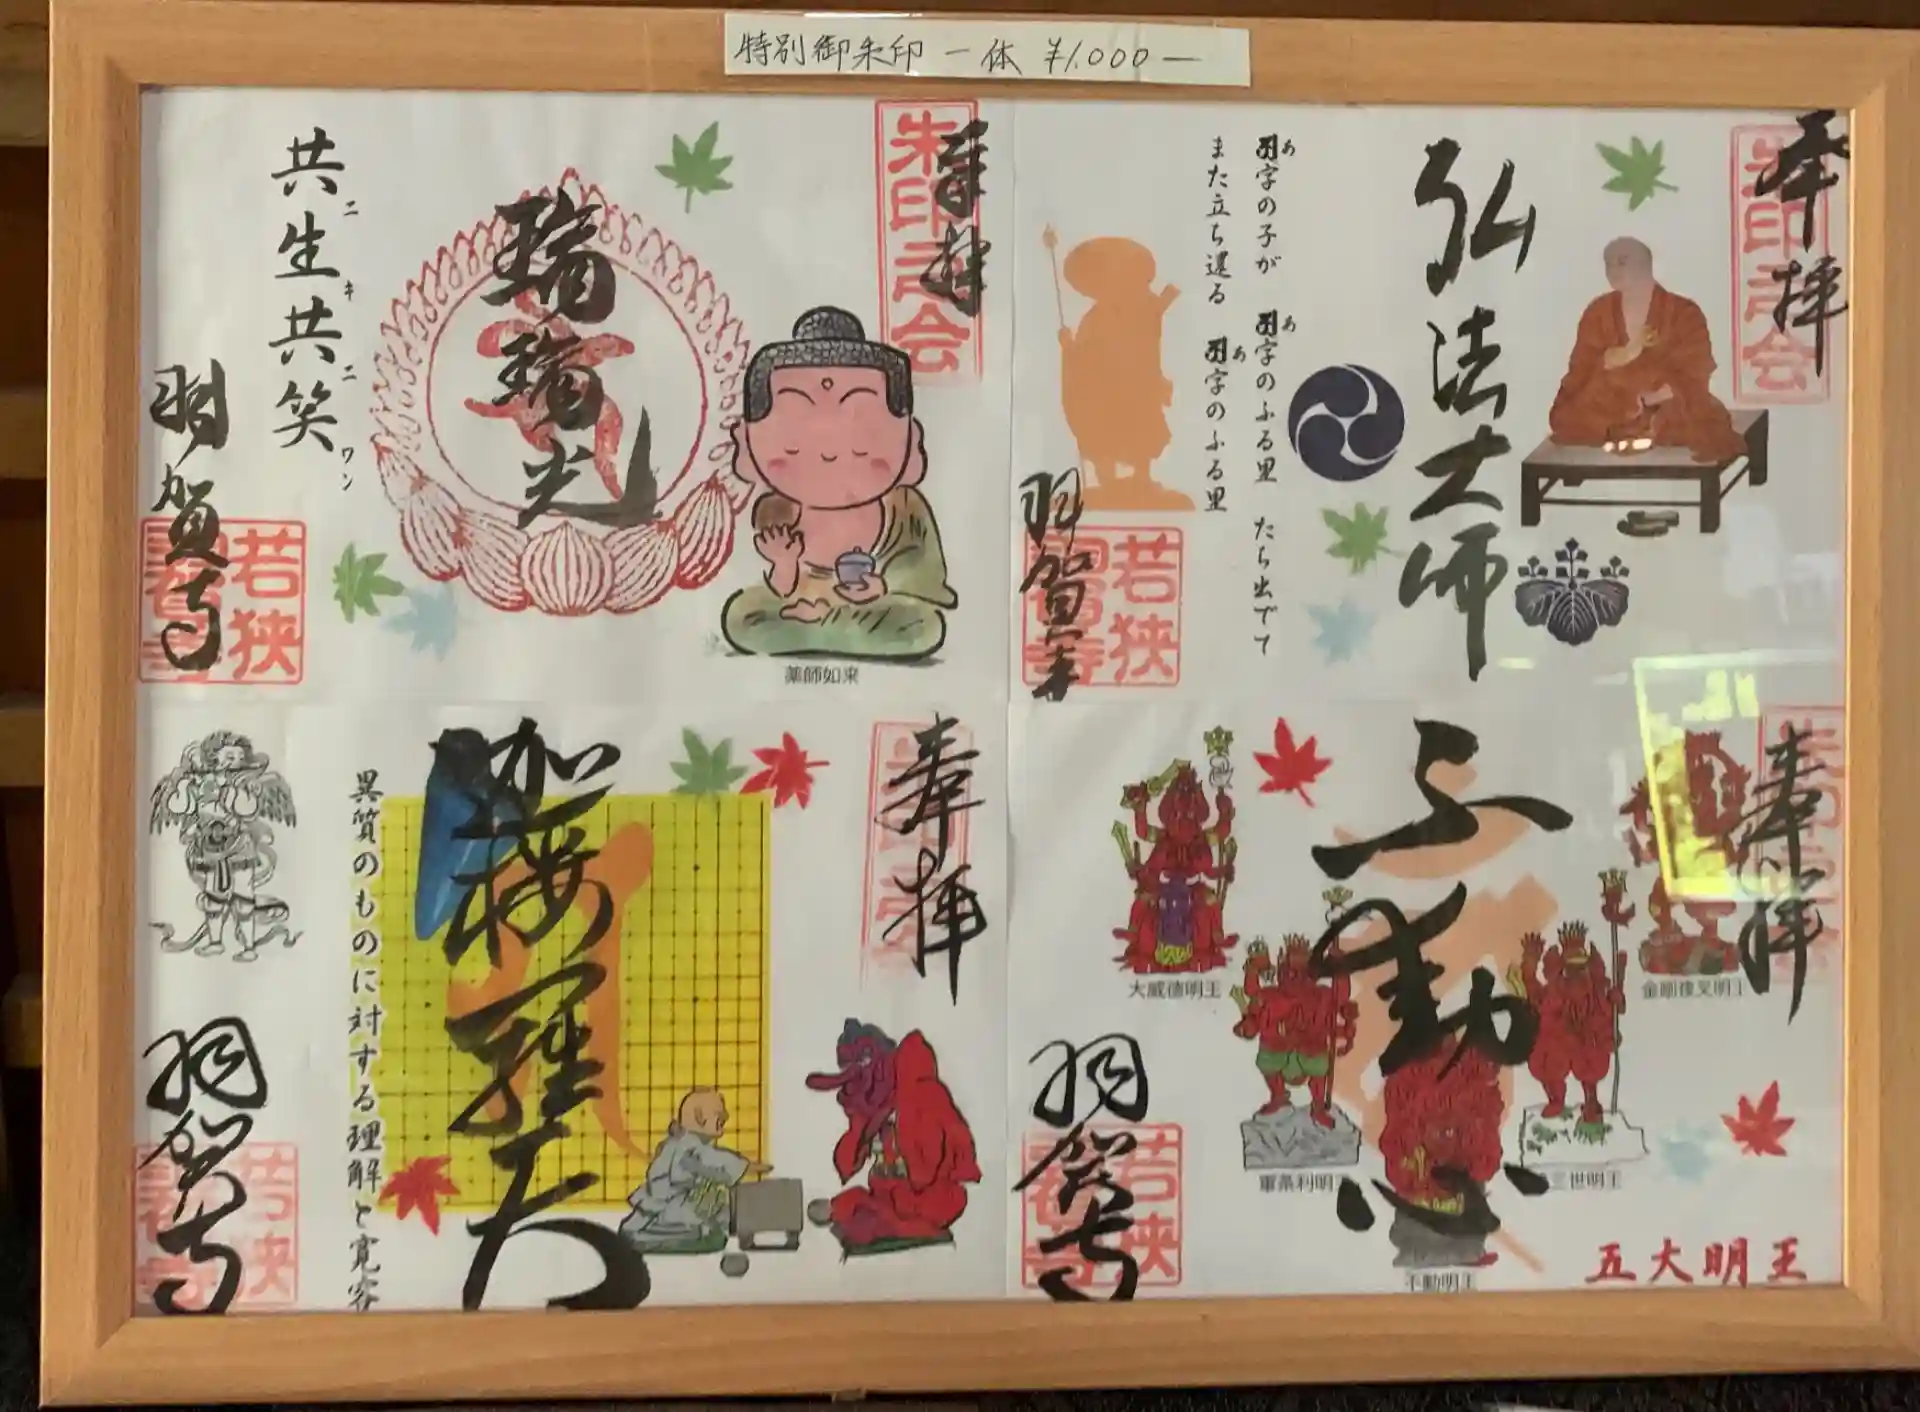 特別御朱印 一体 ¥1,000—
奉拝
朱印
会
瑠璃光
共ニ生キ共ニ笑ワン
羽賀寺
若狭
薬師如来
奉拝
朱印
会
弘法大師
字の子が 字のふる里 たち出でて
また立ち還る 字のふる里
あ
あ
あ
羽賀寺
若狭
奉拝
迦楼羅天
異質のものに対する理解と寛容
羽賀寺
若狭
奉拝
不動心
大威徳明王
金剛夜叉明王
軍荼利明王
三世明王
不動明王
五大明王
羽賀寺
若狭